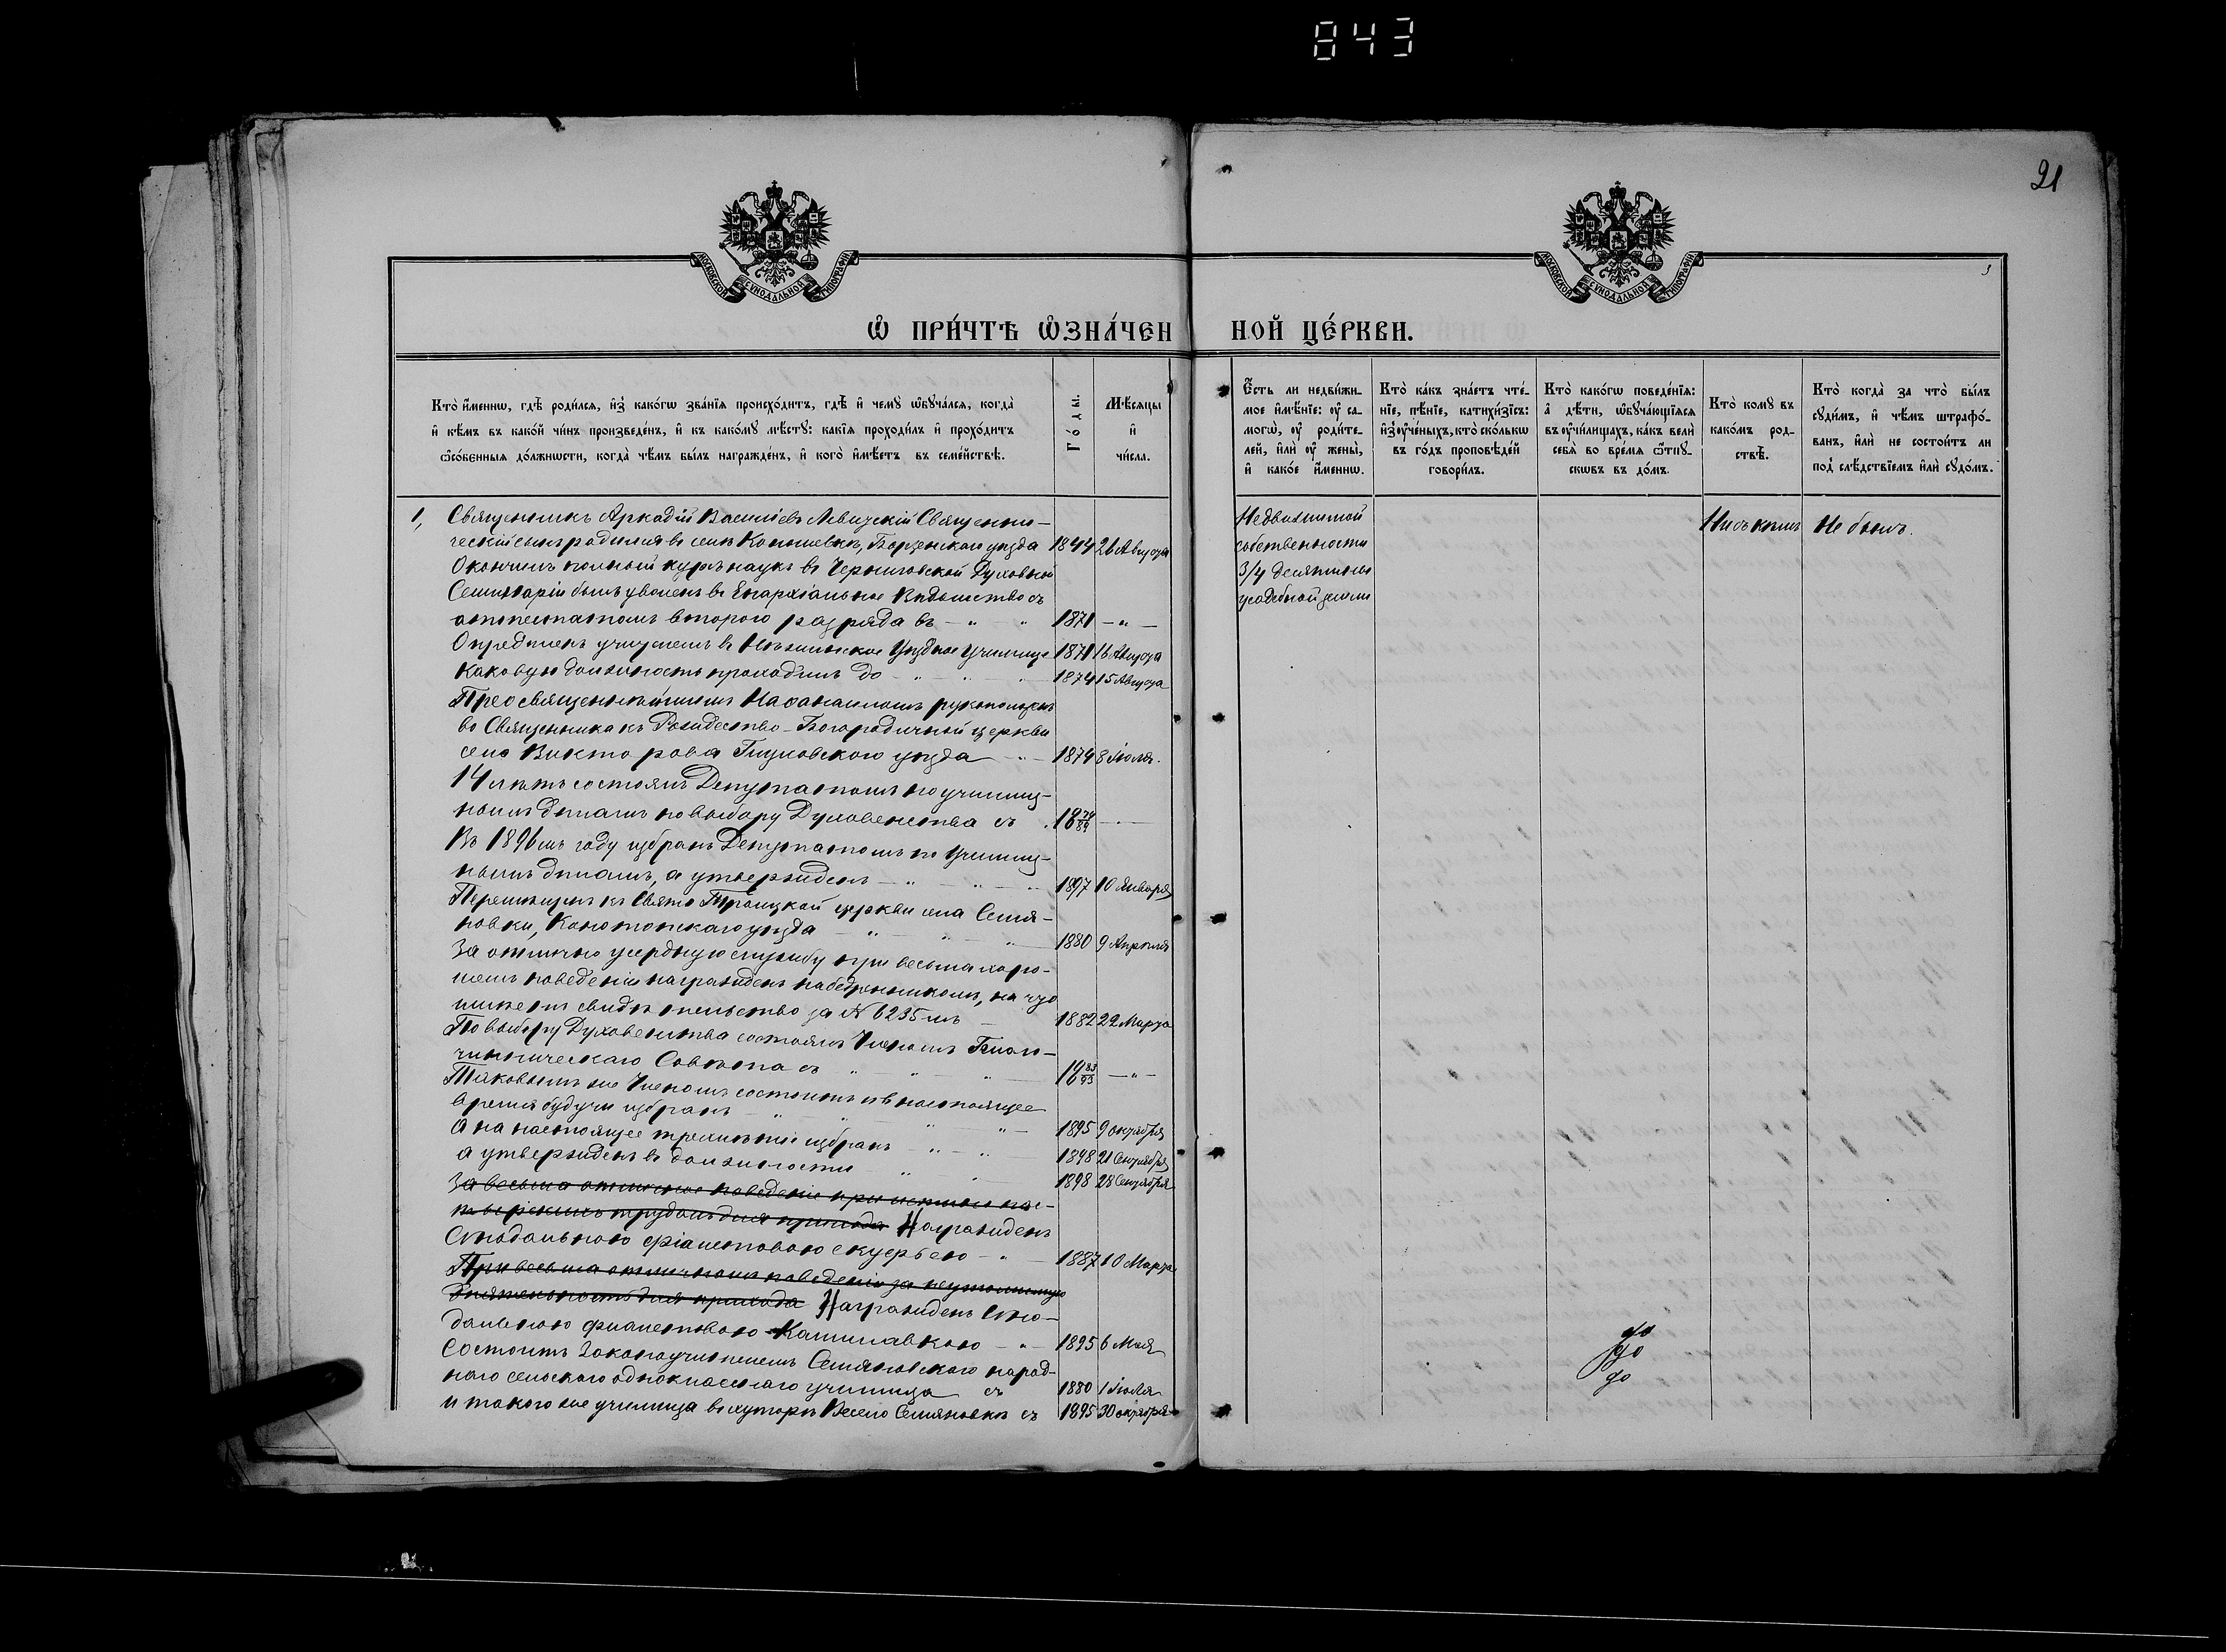 843
21
МОСКОВСКОЙ СѴНОДАЛЬНОЙ ТИПОГРАФІИ
МОСКОВСКОЙ СѴНОДАЛЬНОЙ ТИПОГРАФІИ
3
Ѡ ПРИ́ЧТѢ ѠЗНА́ЧЕН НОЙ ЦЕ́РКВИ.
Кто̀ и҆́меннѡ, гдѣ̀ роди́лсѧ, и҆з̾ како́гѡ зва́нїѧ происхо́дитъ, гдѣ̀ и҆ чемꙋ̀ ѡ҆бꙋча́лсѧ, когда̀
и҆ кѣ́мъ въ како́й чи́нъ произведе́нъ, и҆ къ како́мꙋ мѣ́стꙋ: какі̑ѧ проходи́лъ и҆ прохо́дитъ
ѻ҆со́бенныѧ до́лжнѡсти, когда̀ чѣ́мъ бы́лъ награжде́нъ, и҆ кого̀ и҆мѣ́етъ въ семе́йствѣ.
Го́ды.
Мѣ́сѧцы
и҆
чи́сла.
Є҆́сть ли недви́жи-
мое и҆мѣ́нїе: ᲂу҆ са-
могѡ̀, ᲂу҆ роди́те-
лей, и҆лѝ ᲂу҆ жены̀,
и҆ како́е и҆́меннѡ.
Кто̀ ка́къ зна́етъ чте́-
нїе, пѣ́нїе, катихи́зїсъ:
и҆з̾ ᲂу҆че́ныхъ, кто̀ ско́лькѡ
въ го́дъ проповѣ́дей
говори́лъ.
Кто̀ како́гѡ поведе́нїѧ:
а҆ дѣ́ти, ѡ҆бꙋча́ющїѧсѧ
въ ᲂу҆чи́лищахъ, ка́къ велѝ
себѧ̀ во вре́мѧ ѿпꙋ-
скѡвъ въ до́мъ.
Кто̀ комꙋ̀ въ
како́мъ род-
ствѣ̀.
Кто̀ когда̀ за что̀ бы́лъ
сꙋди́мъ, и҆ чѣ́мъ штрафо́-
ванъ, и҆лѝ не состои́тъ ли
под̾ слѣ́дствїемъ и҆лѝ сꙋдо́мъ.
1, Священникъ Аркадій Василіевъ Левицкій Священни-
ческій сынъ родился въ селѣ Борзенскаго уѣзда 1844 26 Августа
Окончилъ полный курсъ наукъ въ Черниговской Духовной
Семинаріи былъ уволенъ въ Епархіальное Вѣдомство съ
аттестатомъ второго разряда въ - " - " 1871 - " -
Опредѣленъ учителемъ въ Нѣжинское Уѣздное Училище 1871 16 Августа
каковую должность проходилъ до - " - " - " 1874 15 Августа
Преосвященнѣйшимъ Нафанаиломъ рукоположенъ
во Священника къ Рождество-Богородичной церкви
села Викторова Глуховского уѣзда - " - 1874 8 Іюля.
14 лѣтъ состоялъ Депутатомъ по училищ-
нымъ дѣламъ по выбору Духовенства съ
Въ 1896мъ году избранъ Депутатомъ по Училищ-
нымъ дѣламъ, а утвержденъ - " - " - " 1897 10 Января
Перемѣщенъ къ Свято Троицкой церкви села Семя-
новки, Конотопскаго уѣзда - " - " - " 1880 9 Апрѣля
За отлично усердную службу при весьма хоро-
шемъ поведеніи награжденъ набедренникомъ, на что
имѣетъ свидѣтельство за № 6235мъ - 1882 22 Марта
По выбору Духовенства состоялъ Членомъ Благо-
чинническаго Совѣта съ " - " - " 18 83/95 - " -
Таковымъ же Членомъ состоитъ и въ настоящее
время будучи избранъ - " - " - " 1895 9 октября
А на настоящее трехлѣтіе избранъ - " - " 1898 21 Сентября
а утвержденъ въ должности " - " 1898 28 Сентября
За весьма отличное поведеніе при
трудахъ для прихода Награжденъ
Сѵнодальною фіалетовою скуфьею - " - 1887 10 Марта
При весьма отличномъ поведеніи за неутомимую
дѣятельность для прихода Награжденъ Сѵно-
дальною фиалетовою Камилавкою - " - 1895 6 Мая
Состоитъ Законоучителемъ Семяновскаго народ-
наго сельскаго однокласснаго училища съ 1880 1 Іюля
и такого же училища въ хуторѣ Весело Семяновкѣ съ 1895 30 октября
Недвижимой
собственности
3/4 десятины
усадебной земли
Ни съ кѣмъ
Не былъ.